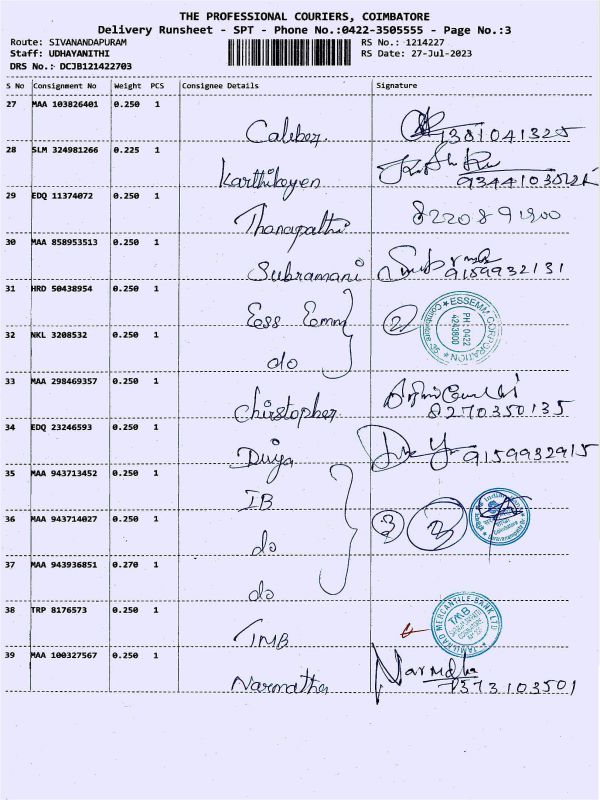 THE PROFESSIONAL COURIERS, COIMBATORE
Delivery Runsheet - SPT - Phone No.:0422-3505555 - Page No.:3
Route: SIVANANDAPURAM RS No.: 1214227
Staff: UDHAYANITHI RS Date: 27-Jul-2023
DRS No.: DCJB121422703
S No Consignment No Weight PCS Consignee Details Signature
27 MAA 103826401 0.250 1
Caliber
28 SLM 324981266 0.225 1
Karthikeyen
29 EDQ 11374072 0.250 1
Thanapathi
30 MAA 858953513 0.250 1
Subramani 9159932131
31 HRD 50438954 0.250 1
Ess Emm 2 ESSEMM CORPORATION PH: 0422 4243800
32 NKL 3208532 0.250 1
do
33 MAA 298469357 0.250 1
Christopher 8270350135
34 EDQ 23246593 0.250 1
Divya 9159932915
35 MAA 943713452 0.250 1
IB
36 MAA 943714027 0.250 1
do 3 3
37 MAA 943936851 0.270 1
do
38 TRP 8176573 0.250 1
TMB TAMILNAD MERCANTILE BANK LTD TMB
39 MAA 100327567 0.250 1
Narmatha Narmdha 7373103501